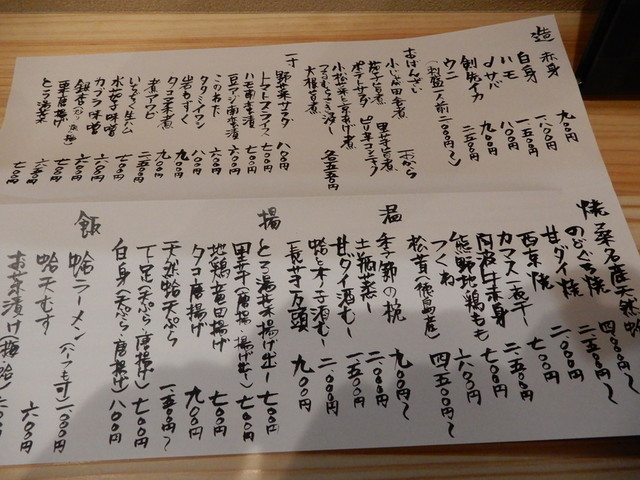 造
赤身 九〇〇円
白身 一、八〇〇円
ハモ 一、五〇〇円
〆サバ 八〇〇円
剣先イカ 九〇〇円
ウニ 二、五〇〇円
(刺盛一人前 二、〇〇〇円〜)
おばんざい
小じゃが田舎煮 おから
茄子旨煮 里芋旨煮
ポテトサラダ ピリ辛コンニャク
小松菜と京あげ煮
大根旨煮 各五五〇円
一寸
野菜サラダ 八〇〇円
トマトスライス 七〇〇円
ハモ南蛮漬 一、〇〇〇円
豆アジ南蛮漬 七〇〇円
このわた 六〇〇円
タタミイワシ 七〇〇円
岩もずく 八〇〇円
タコ柔煮 九〇〇円
煮アワビ 二、五〇〇円
いちじく生ハム
水茄子味噌 七〇〇円
カブラ味噌 六〇〇円
銀杏
里芋唐揚げ 六五〇円
とろ湯葉 七〇〇円
焼
桑名産天然蛤 四、〇〇〇円〜
のどぐろ焼
甘ダイ焼 二、〇〇〇円
西京焼 七〇〇円
カマス一夜干し
阿波牛赤身 二、五〇〇円〜
熊野地鶏もも
つくね 六八〇円
松茸(徳島産) 四、五〇〇円〜
温
季節の椀 九〇〇円〜
土瓶蒸し 二、〇〇〇円
甘ダイ酒むし 一、五〇〇円
蛤と木ノ子酒むし 二、〇〇〇円
長芋万頭 九〇〇円
揚
とろ湯葉揚げ出し 七〇〇円
里芋(唐揚・揚げ出し) 七〇〇円
地鶏竜田揚げ
タコ唐揚げ 九〇〇円
天然蛤天ぷら 一、五〇〇円〜
下足(天ぷら・唐揚げ) 七〇〇円
白身(天ぷら・唐揚げ) 八〇〇円
飯
蛤ラーメン(ハーフも可) 二、〇〇〇円
蛤天むす 六〇〇円
お茶漬け(梅・蛤)